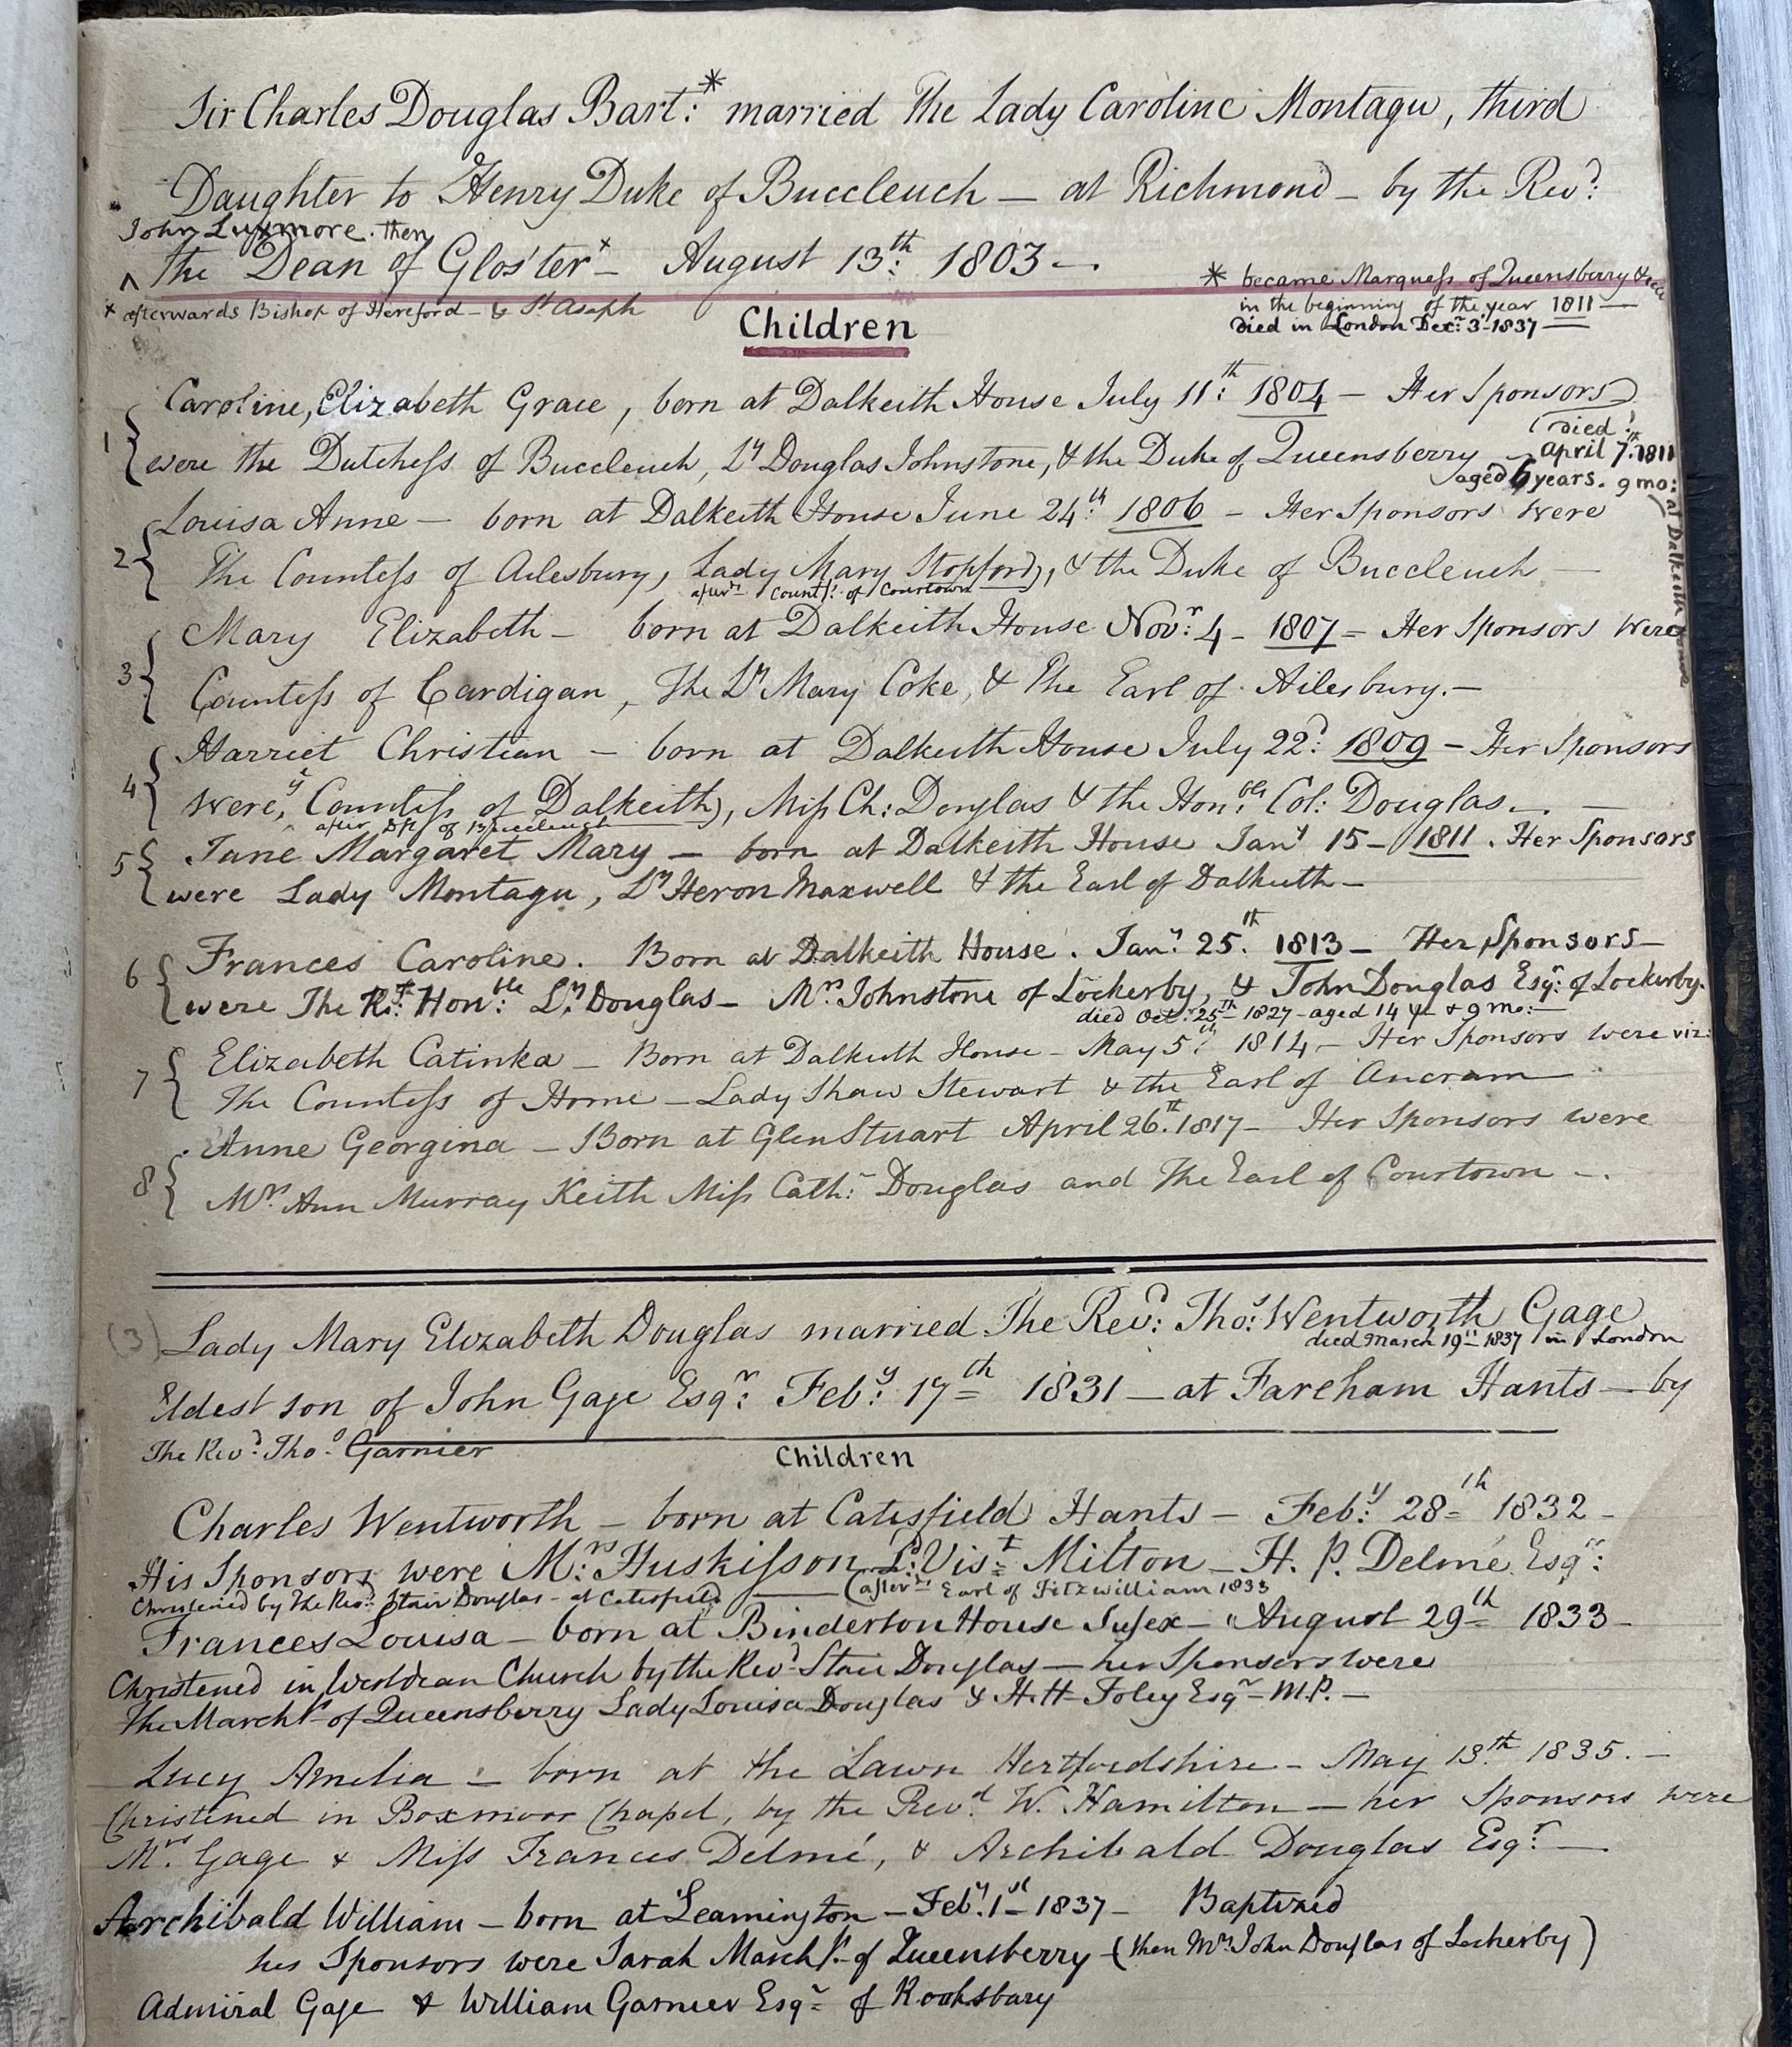 Sir Charles Douglas Bart:* married The Lady Caroline Montagu, third
Daughter to Henry Duke of Buccleuch — at Richmond — by the Revd:
John Luxmore then
^ the Dean of Glos'ter x — August 13th: 1803 —
* became Marquess of Queensberry &
in the beginning of the year 1811 —
died in London Decr: 3 - 1837
x afterwards Bishop of Hereford — & St Asaph
Children
1 { Caroline, Elizabeth Grace, born at Dalkeith House July 11th: 1804 — Her Sponsors
were the Dutchess of Buccleuch, Ly Douglas Johnstone, & the Duke of Queensberry
(died
April 7th: 1811
aged 6 years. 9 mo:
at Dalkeith House
2 { Louisa Anne — born at Dalkeith House June 24th: 1806 — Her Sponsors were
The Countess of Ailesbury, Lady Mary Stopford, & the Duke of Buccleuch —
afterds Countss: of Courtown
3 { Mary Elizabeth — born at Dalkeith House Novr: 4 — 1807 = Her Sponsors were
Countess of Cardigan, The Ly Mary Coke, & The Earl of Ailesbury. —
4 { Harriet Christian — born at Dalkeith House July 22d: 1809 — Her Sponsors
were, ye Countess of Dalkeith, Miss Ch: Douglas & the Honble: Col: Douglas —
after Dss of Buccleuch
5 { Jane Margaret Mary — born at Dalkeith House Jany 15 — 1811. Her Sponsors
were Lady Montagu, Ly Heron Maxwell & the Earl of Dalkeith —
6 { Frances Caroline. Born at Dalkeith House. Jany: 25th. 1813 — Her Sponsors —
were The Rt: Honble: Ly: Douglas — Mrs Johnstone of Lockerby, & John Douglas Esqr: of Lockerby.
died Oct: 25th — 1827 — aged 14 y — & 9 mo: —
7 { Elizabeth Catinka — Born at Dalkeith House — May 5th: 1814 — Her Sponsors were viz:
The Countess of Home — Lady Shaw Stewart & the Earl of Ancram
8 { Anne Georgina — Born at Glen Stuart April 26th. 1817 — Her Sponsors were
Mrs. Ann Murray Keith Miss Cath: Douglas and The Earl of Courtown —.
(3) Lady Mary Elizabeth Douglas married The Revd: Thos: Wentworth Gage
died March 19th 1837 in London
Eldest son of John Gage Esqr: Feby: 17th = 1831 — at Fareham Hants — by
The Revd: Thos: Garnier
Children
Charles Wentworth — born at Catisfield Hants — Feby: 28th = 1832 —
His Sponsors were Mrs: Huskisson Ld: Vist = Milton — H. P. Delmé Esqr:
Christened by The Revd: Stair Douglas — at Catisfield — (afterds Earl of Fitzwilliam 1833
Frances Louisa — born at Binderton House Sussex — August 29th = 1833 —
Christened in Westdean Church by the Revd Stair Douglas — her Sponsors were
The Marchss of Queensberry Lady Louisa Douglas & H. H — Foley Esqr — M.P. —
Lucy Amelia — born at the Lawn Hertfordshire — May 13th 1835. —
Christened in Boxmoor Chapel, by the Revd W. Hamilton — her Sponsors were
Mrs. Gage & Miss Frances Delmé, & Archibald Douglas Esqr: —
Archibald William — born at Leamington — Feby. 1st — 1837 — Baptized
his Sponsors were Sarah Marchss of Queensberry — (then Mrs John Douglas of Lockerby)
Admiral Gage & William Garnier Esqr — of Rooksbury